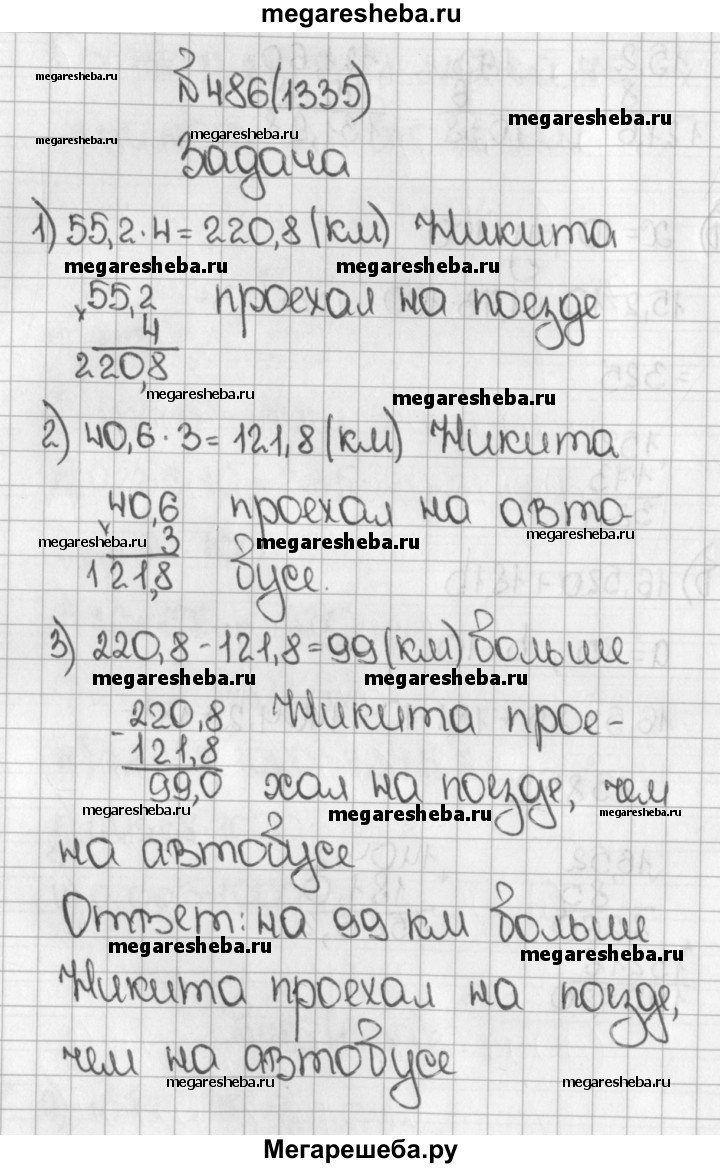 megaresheba.ru
№486(1335)
megaresheba.ru
megaresheba.ru
megaresheba.ru megaresheba.ru
Задача
1) 55,2·4=220,8(км) Никита
megaresheba.ru megaresheba.ru
55,2 проехал на поезде
× 4
220,8
megaresheba.ru megaresheba.ru
2) 40,6·3=121,8(км) Никита
40,6 проехал на авто-
megaresheba.ru × 3 megaresheba.ru megaresheba.ru
121,8 бусе.
3) 220,8-121,8=99(км) больше
megaresheba.ru megaresheba.ru
220,8 Никита прое-
-121,8
99,0 хал на поезде, чем
megaresheba.ru megaresheba.ru megaresheba.ru
на автобусе
Ответ: на 99 км больше
megaresheba.ru megaresheba.ru
Никита проехал на поезде,
чем на автобусе
megaresheba.ru megaresheba.ru megaresheba.ru
Мегарешеба.ру